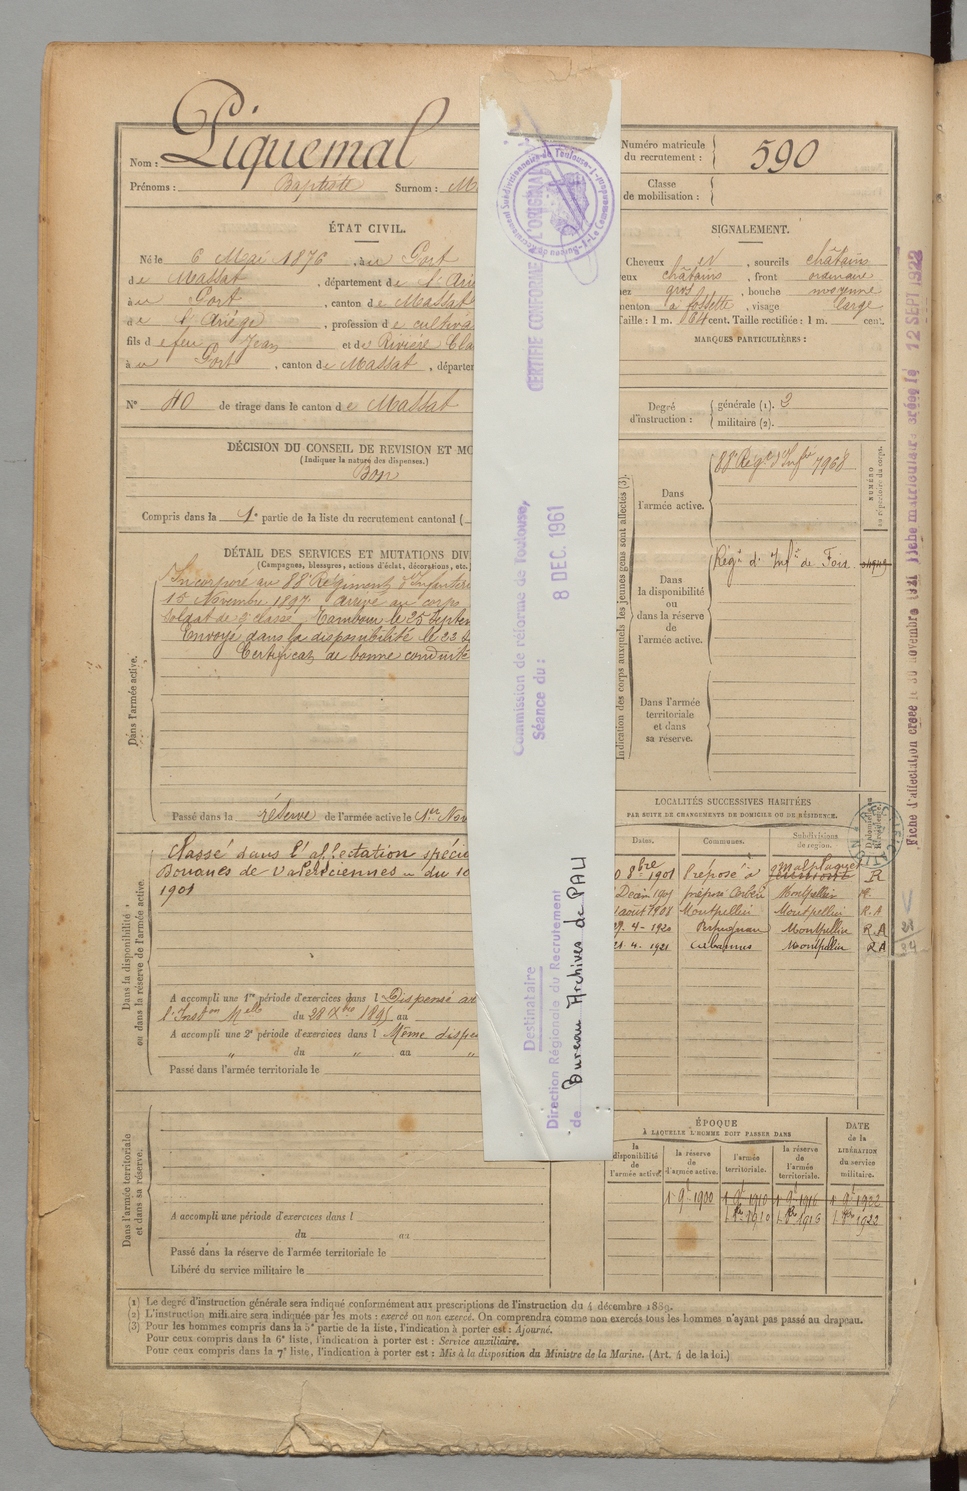 Nom : Piquemal
Prénoms : Baptiste Surnom :
Numéro matricule du recrutement : 590
Classe de mobilisation :
ÉTAT CIVIL.
Né le 6 Mai 1876, à u Port
de Massat, département de l'Ari
à u Port, canton de Massat
de l'Ariège, profession de cultiva
fils de feu Jean et de Rivière Cla
à u Port, canton de Massat, départe
N° 40 de tirage dans le canton de Massat
DÉCISION DU CONSEIL DE REVISION ET MO
(Indiquer la nature des dispenses.)
Bon
Compris dans la 1e partie de la liste du recrutement cantonal (
DÉTAIL DES SERVICES ET MUTATIONS DIV
(Campagnes, blessures, actions d'éclat, décorations, etc.
Incorporé au 88e Régiment d'Infanterie
15 Novembre 1897 arrivé au corps
soldat de 2e classe, Tambour le 25 Septem
Envoyé dans la disponibilité le 22
Certificat de bonne conduite
Dans l'armée active.
Passé dans la réserve de l'armée active le 1er Nov
Passé dans l'affectation spécia
Douanes de Valenciennes du 10
1901
Dans la disponibilité
ou dans la réserve de l'armée active.
A accompli une 1re période d'exercices dans l Dispensé
du 28 Xbre 1895 au
A accompli une 2e période d'exercices dans l Même dispe
" du " au "
Passé dans l'armée territoriale le
Dans l'armée territoriale
et dans sa réserve.
A accompli une période d'exercices dans l
du au
Passé dans la réserve de l'armée territoriale le
Libéré du service militaire le
SIGNALEMENT.
Cheveux et, sourcils châtains
eux châtains, front ordinaire
nez gros, bouche moyenne
menton à fossette, visage large
Taille : 1 m. 64 cent. Taille rectifiée : 1 m. cent.
MARQUES PARTICULIÈRES :
Degré d'instruction :
générale (1). 3
militaire (2).
Indication des corps auxquels les jeunes gens sont affectés (3).
NUMÉRO
au répertoire du corps.
Dans
l'armée active.
88e Régt d'Infie 7968
Dans
la disponibilité
ou
dans la réserve
de
l'armée active.
Régt d'Infie de Foix
Dans l'armée
territoriale
et dans
sa réserve.
LOCALITÉS SUCCESSIVES HABITÉES
PAR SUITE DE CHANGEMENTS DE DOMICILE OU DE RÉSIDENCE.
Dates. Communes. Subdivisions de région. Domicile ou Résidence
0 8bre 1901 Préposé à Malplaquet R
Décem 1901 préposé Cerbère Montpellier
août 1908 Montpellier Montpellier R.A
29. 4 - 1920 Perpignan Montpellier R.A
21. 4. - 1921 Cabannes Montpellier RA
ÉPOQUE
À LAQUELLE L'HOMME DOIT PASSER DANS
DATE
de la
LIBÉRATION
du service
militaire.
la
disponibilité
de
l'armée active.
la réserve
de
l'armée active.
l'armée
territoriale.
la réserve
de
l'armée
territoriale.
1 9bre 1900 1 9bre 1910 1 9bre 1916 1 9bre 1922
1 8bre 1910 1 8bre 1916 1 8bre 1922
(1) Le degré d'instruction générale sera indiqué conformément aux prescriptions de l'instruction du 4 décembre 1889.
(2) L'instruction militaire sera indiquée par les mots : exercé ou non exercé. On comprendra comme non exercés tous les hommes n'ayant pas passé au drapeau.
(3) Pour les hommes compris dans la 5e partie de la liste, l'indication à porter est : Ajourné.
Pour ceux compris dans la 6e liste, l'indication à porter est : Service auxiliaire.
Pour ceux compris dans la 7e liste, l'indication à porter est : Mis à la disposition du Ministre de la Marine. (Art. 4 de la loi.)
CERTIFIE CONFORME A L'ORIGINAL
Commission de réforme de Toulouse,
Séance du : 8 DEC. 1961
Destinataire
Direction Régionale du Recrutement
de Bureau Archives de PAU
Fiche d'affectation créée le 30 novembre 1921 Fiche matriculaire créée le 12 SEPT 1922